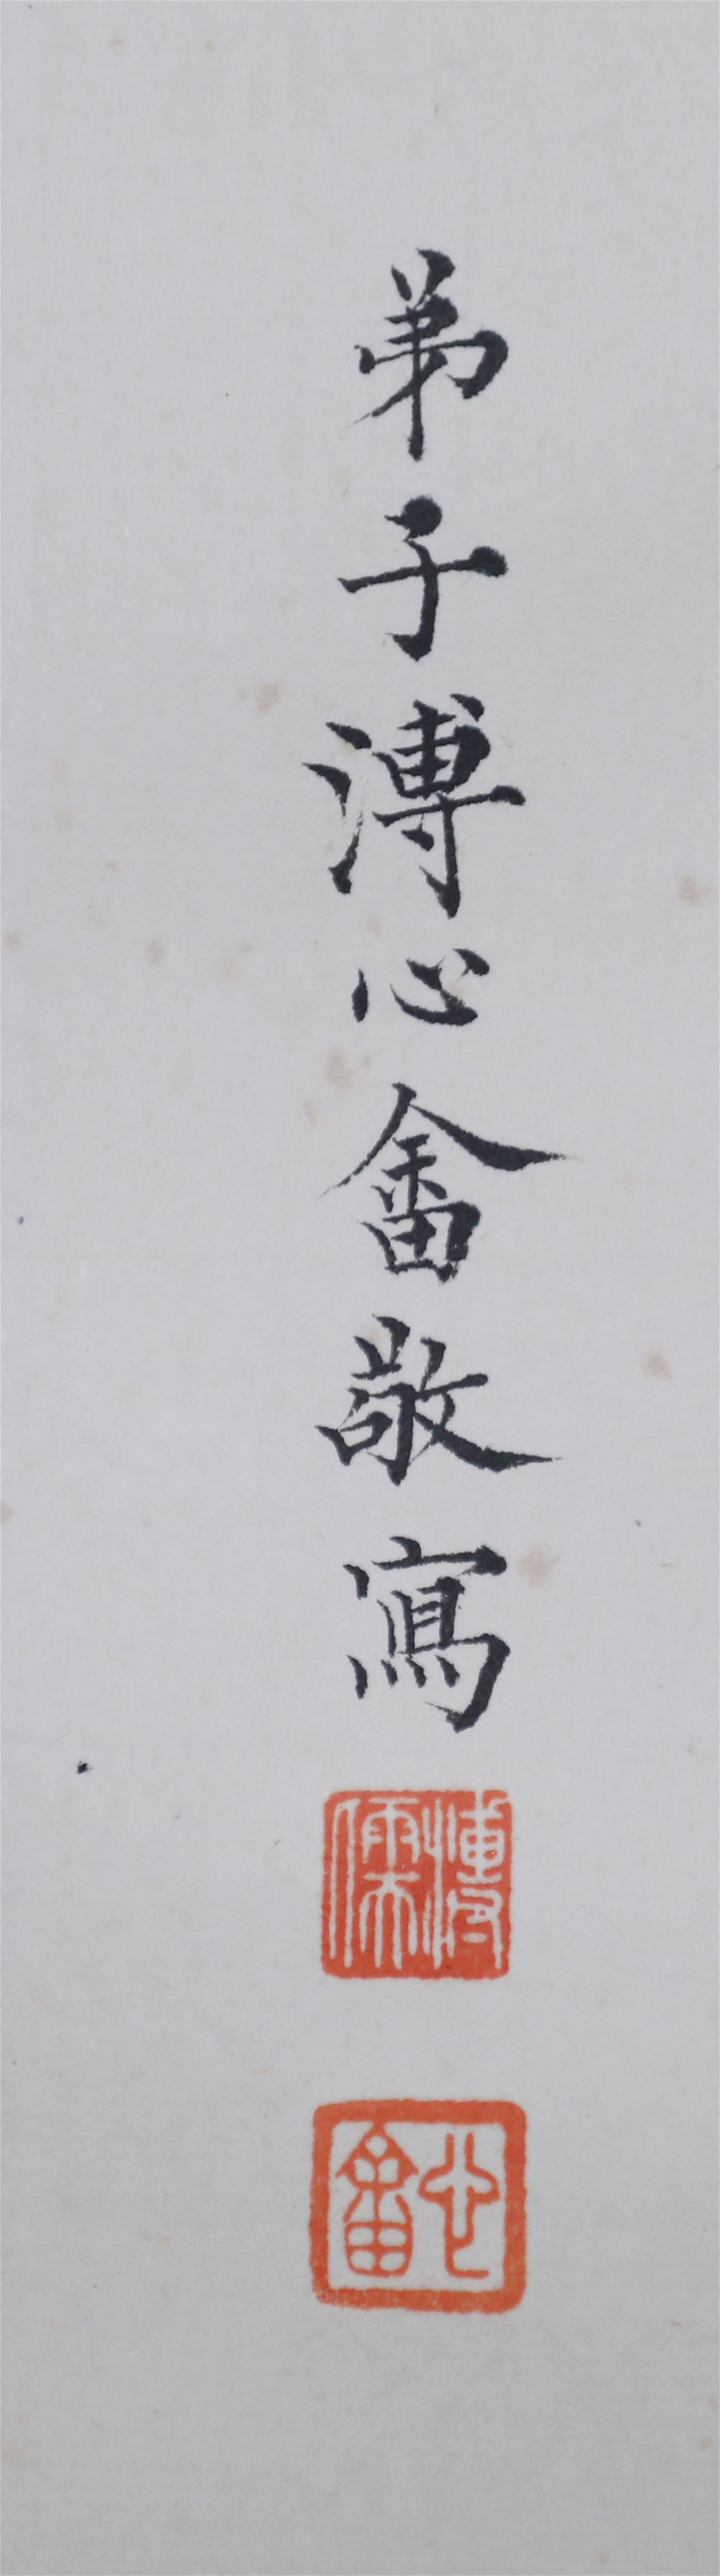 弟子溥心畬敬寫
溥儒
心畬